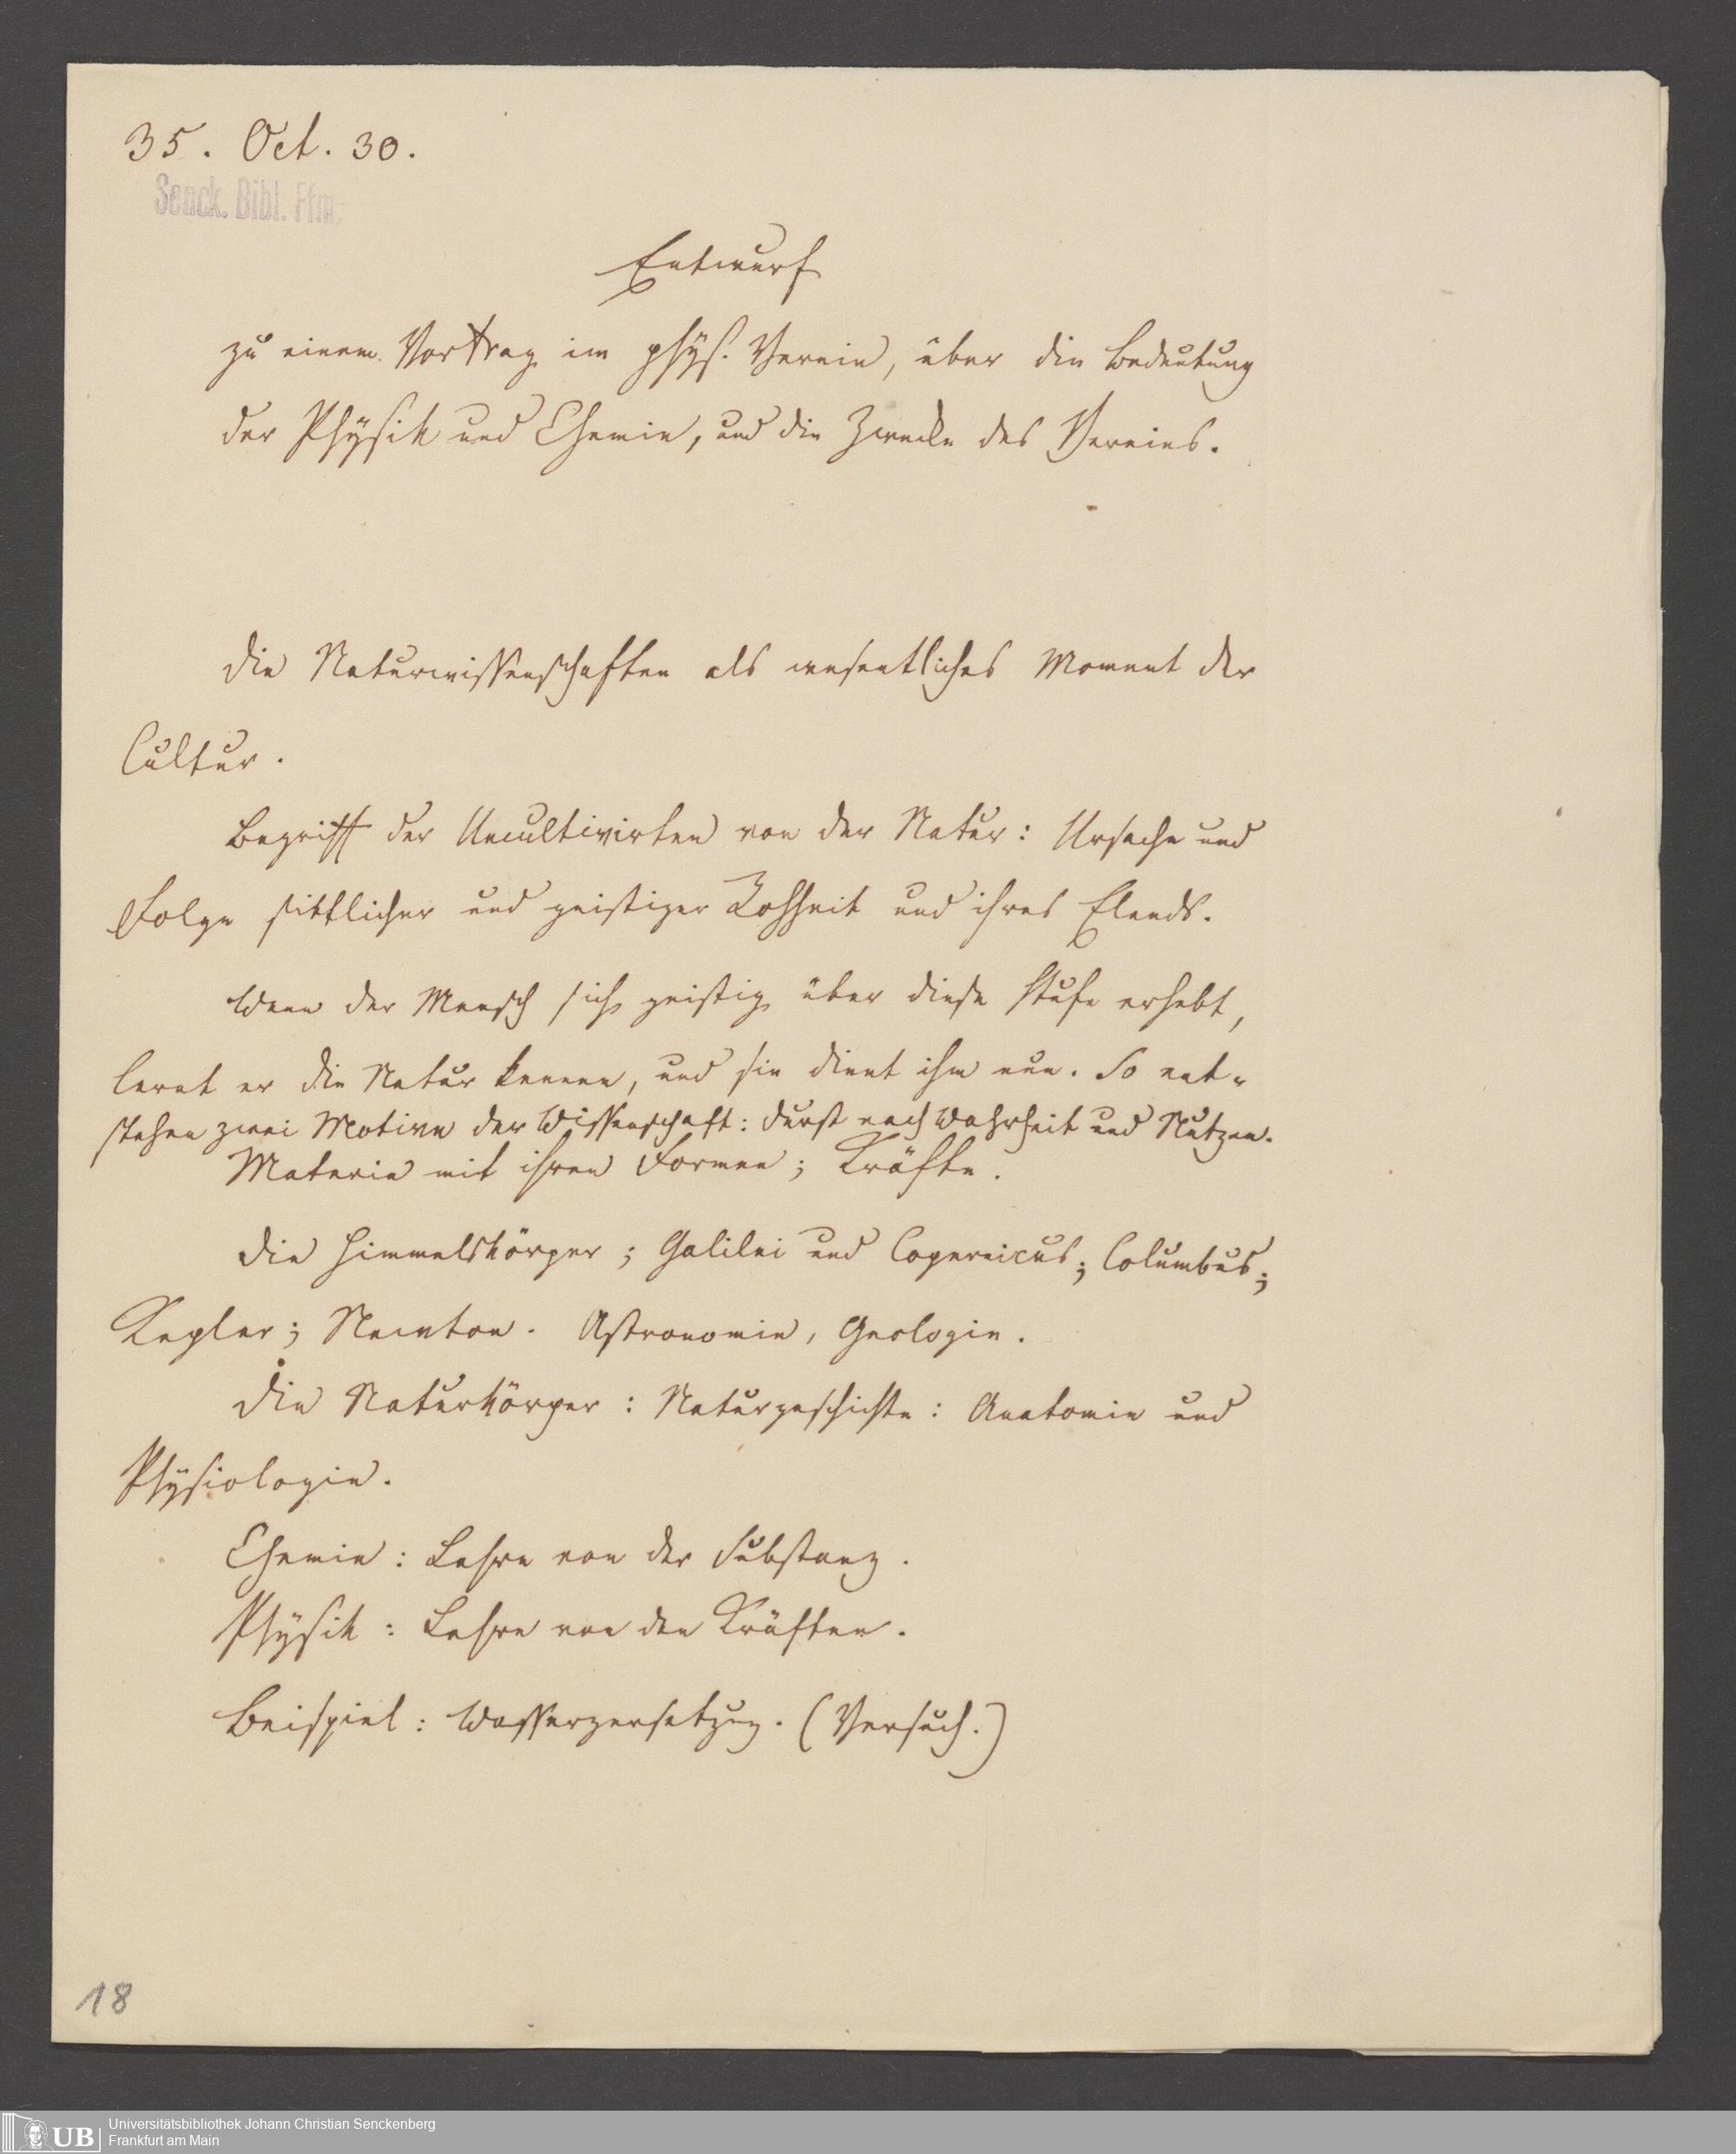 35. Oct. 30.
Senck. Bibl. Ffm.
Entwurf
zu einem Vortrag im phys. Verein, über die Bedeutung
der Physik und Chemie, und die Zwecke des Vereins.
Die Naturwissenschaften als wesentliches Moment der
Cultur.
Begriff der Uncultivirten von der Natur: Ursache und
Folge sittlicher und geistiger Rohheit und ihres Elends.
Wenn der Mensch sich geistig über diese Stufe erhebt,
lernt er die Natur kennen, und sie dient ihm nun. So ent-
stehen zwei Motive der Wissenschaft: Durst nach Wahrheit und Nutzen.
Materie mit ihren Formen; Kräfte.
Die Himmelskörper; Galilei und Copernicus; Columbus;
Kepler; Newton. Astronomie, Geologie.
Die Naturkörper: Naturgeschichte: Anatomie und
Physiologie.
Chemie: Lehre von der Substanz.
Physik: Lehre von den Kräften.
Beispiel: Wasserzersetzug. (Versuch.)
18
UB
Universitätsbibliothek Johann Christian Senckenberg
Frankfurt am Main